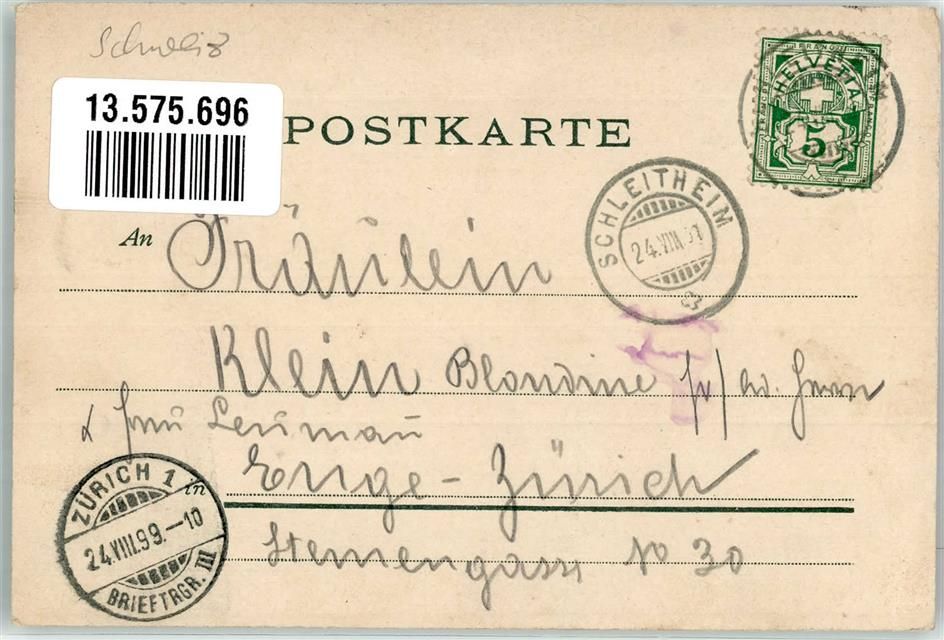 Schweiz
13.575.696
POSTKARTE
FRANCO
HELVETIA
5
SCHLEITHEIM
24.VIII.99
An Fräulein
Klein Blondine p/ ad. Herrn
& Frau Leumau
Enge - Zürich
in
Sternengasse No 30
ZÜRICH 1
24.VIII.99.-10
BRIEFTRGR. III